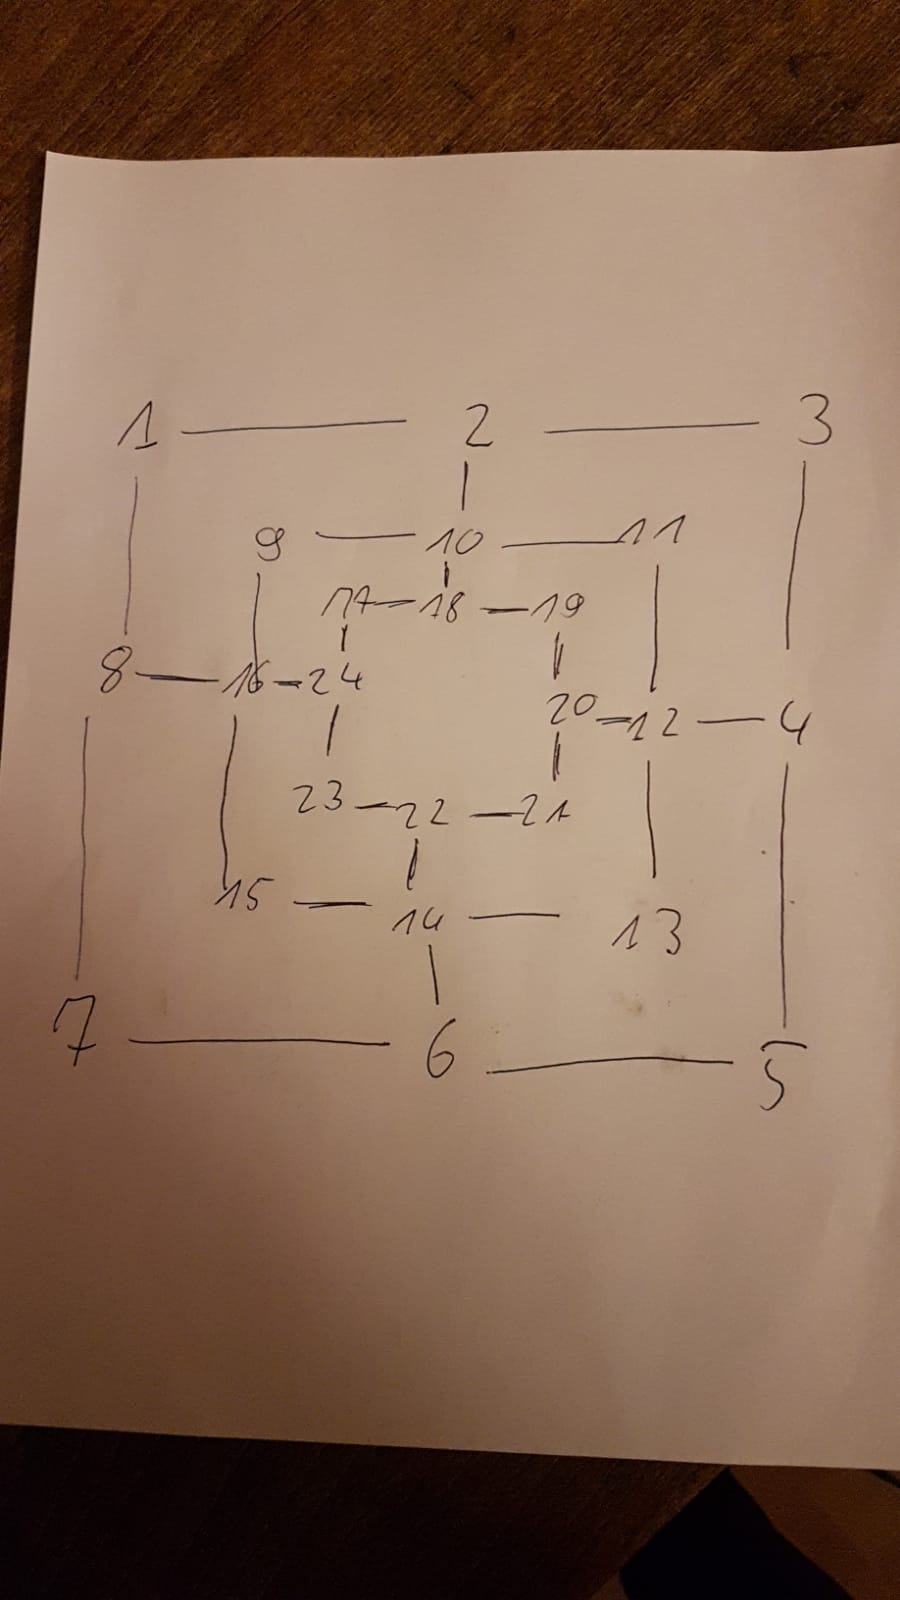 1 2 3
9 10 11
17 18 19
8 16 24 20 12 4
23 22 21
15 14 13
7 6 5